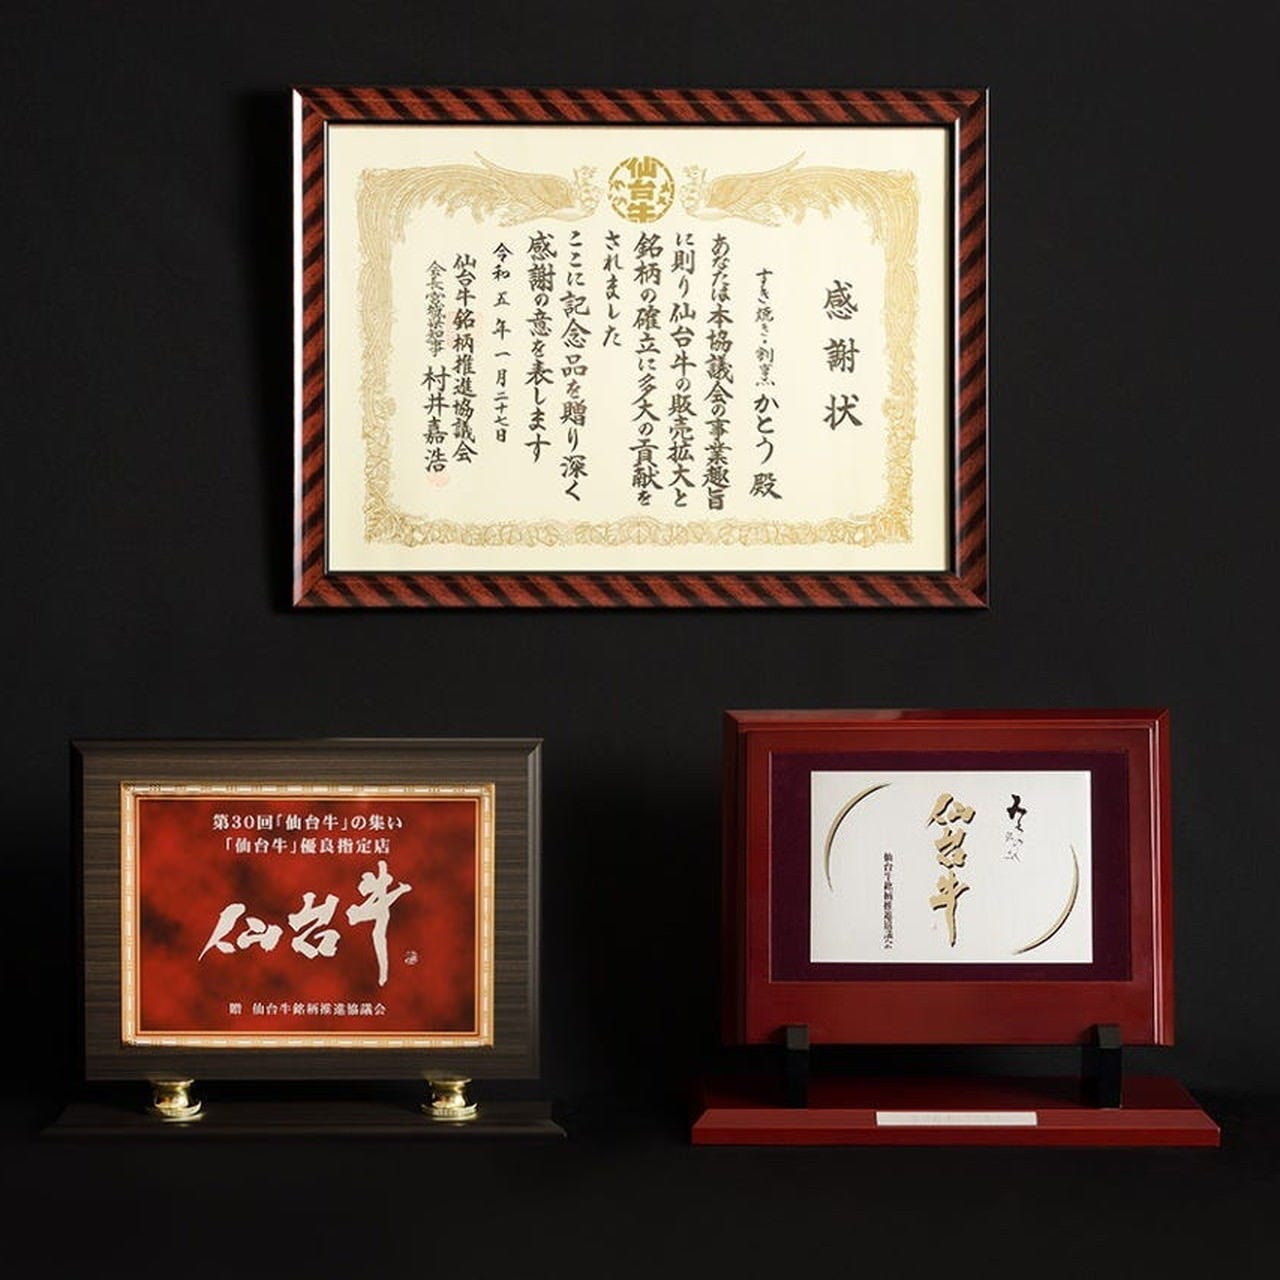 仙台牛
感謝状
すき焼き・割烹 かとう 殿
あなたは本協議会の事業趣旨
に則り仙台牛の販売拡大と
銘柄の確立に多大の貢献を
されました
ここに記念品を贈り深く
感謝の意を表します
令和五年一月二十七日
仙台牛銘柄推進協議会
会長 宮城県知事 村井嘉浩
第30回「仙台牛」の集い
「仙台牛」優良指定店
仙台牛
贈 仙台牛銘柄推進協議会
仙台牛
仙台牛銘柄推進協議会